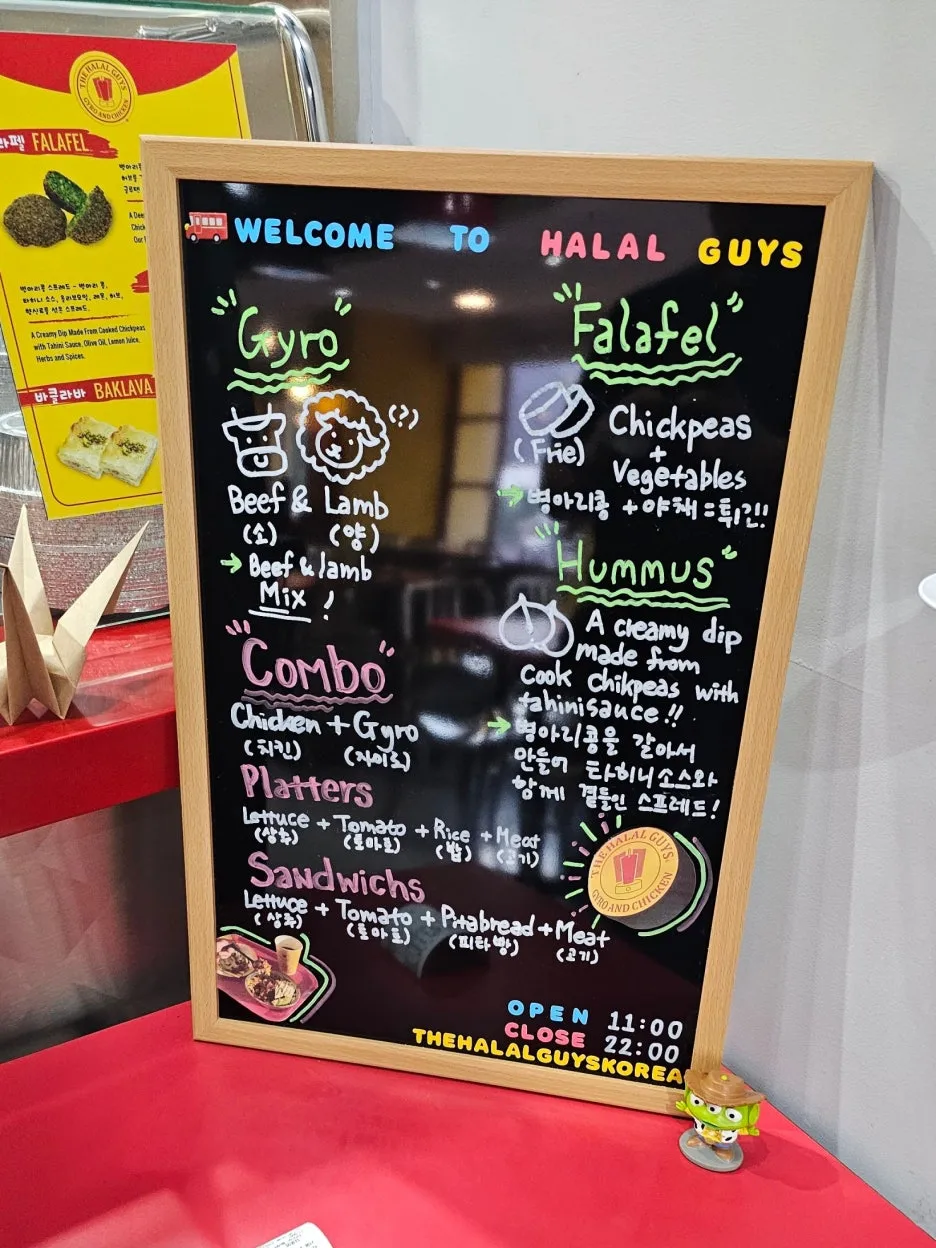 THE HALAL GUYS
GYRO AND CHICKEN
FALAFEL
병아리콩 스프레드 - 병아리 콩,
타히니 소스, 올리브오일, 레몬, 허브,
향신료를 섞은 스프레드.
A Creamy Dip Made From Cooked Chickpeas
with Tahini Sauce, Olive Oil, Lemon Juice,
Herbs and Spices.
바클라바 BAKLAVA
WELCOME TO HALAL GUYS
"Gyro"
Beef & Lamb
(소) (양)
→ Beef & lamb
Mix !
"Combo"
Chicken + Gyro
(치킨) (자이로)
Platters
Lettuce + Tomato + Rice + Meat
(상추) (토마토) (밥) (고기)
Sandwichs
Lettuce + Tomato + Pitabread + Meat
(상추) (토마토) (피타빵) (고기)
"Falafel"
(Frie)
Chickpeas
+
Vegetables
→ 병아리콩 + 야채 = 튀긴!!
"Hummus"
A creamy dip
made from
cook chikpeas with
tahinisauce !!
→ 병아리콩을 갈아서
만들어 타히니소스와
함께 곁들인 스프레드!
THE HALAL GUYS
GYRO AND CHICKEN
OPEN 11:00
CLOSE 22:00
THEHALALGUYSKOREA